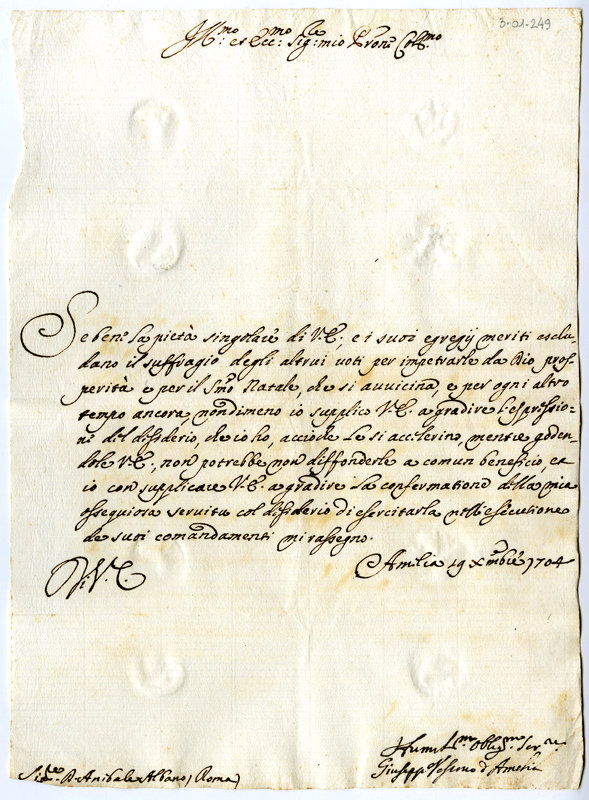 3-01-249
Ill.mo et Ecc.mo Sig.re mio Pron.e Coll.mo
Se bene la pietà singolare di V.E., e i suoi egregij meriti esclu-
dano il suffragio degli altrui voti per impetrarle da Dio pros-
perità e per il S.mo Natale, che si avvicina, e per ogni altro
tempo ancora, nondimeno io supplico V.E. a gradire l'espressio-
ne del desiderio, che io ho, acciò che Le si accelerino, mentre goden-
dole V.E., non potrebbe non diffonderle a comun beneficio, et
io con supplicare V.E. a gradire la confermatione della mia
ossequiosa servitù col desiderio di esercitarla nell'esecutione
de suoi comandamenti mi rassegno.
Di V.E.
Amelia 19 Xmbre 1704
Humil.mo Oblig.mo Ser.re
Giuseppe Vescovo d'Amelia
Sig.re D. Anibale Albano, Roma)